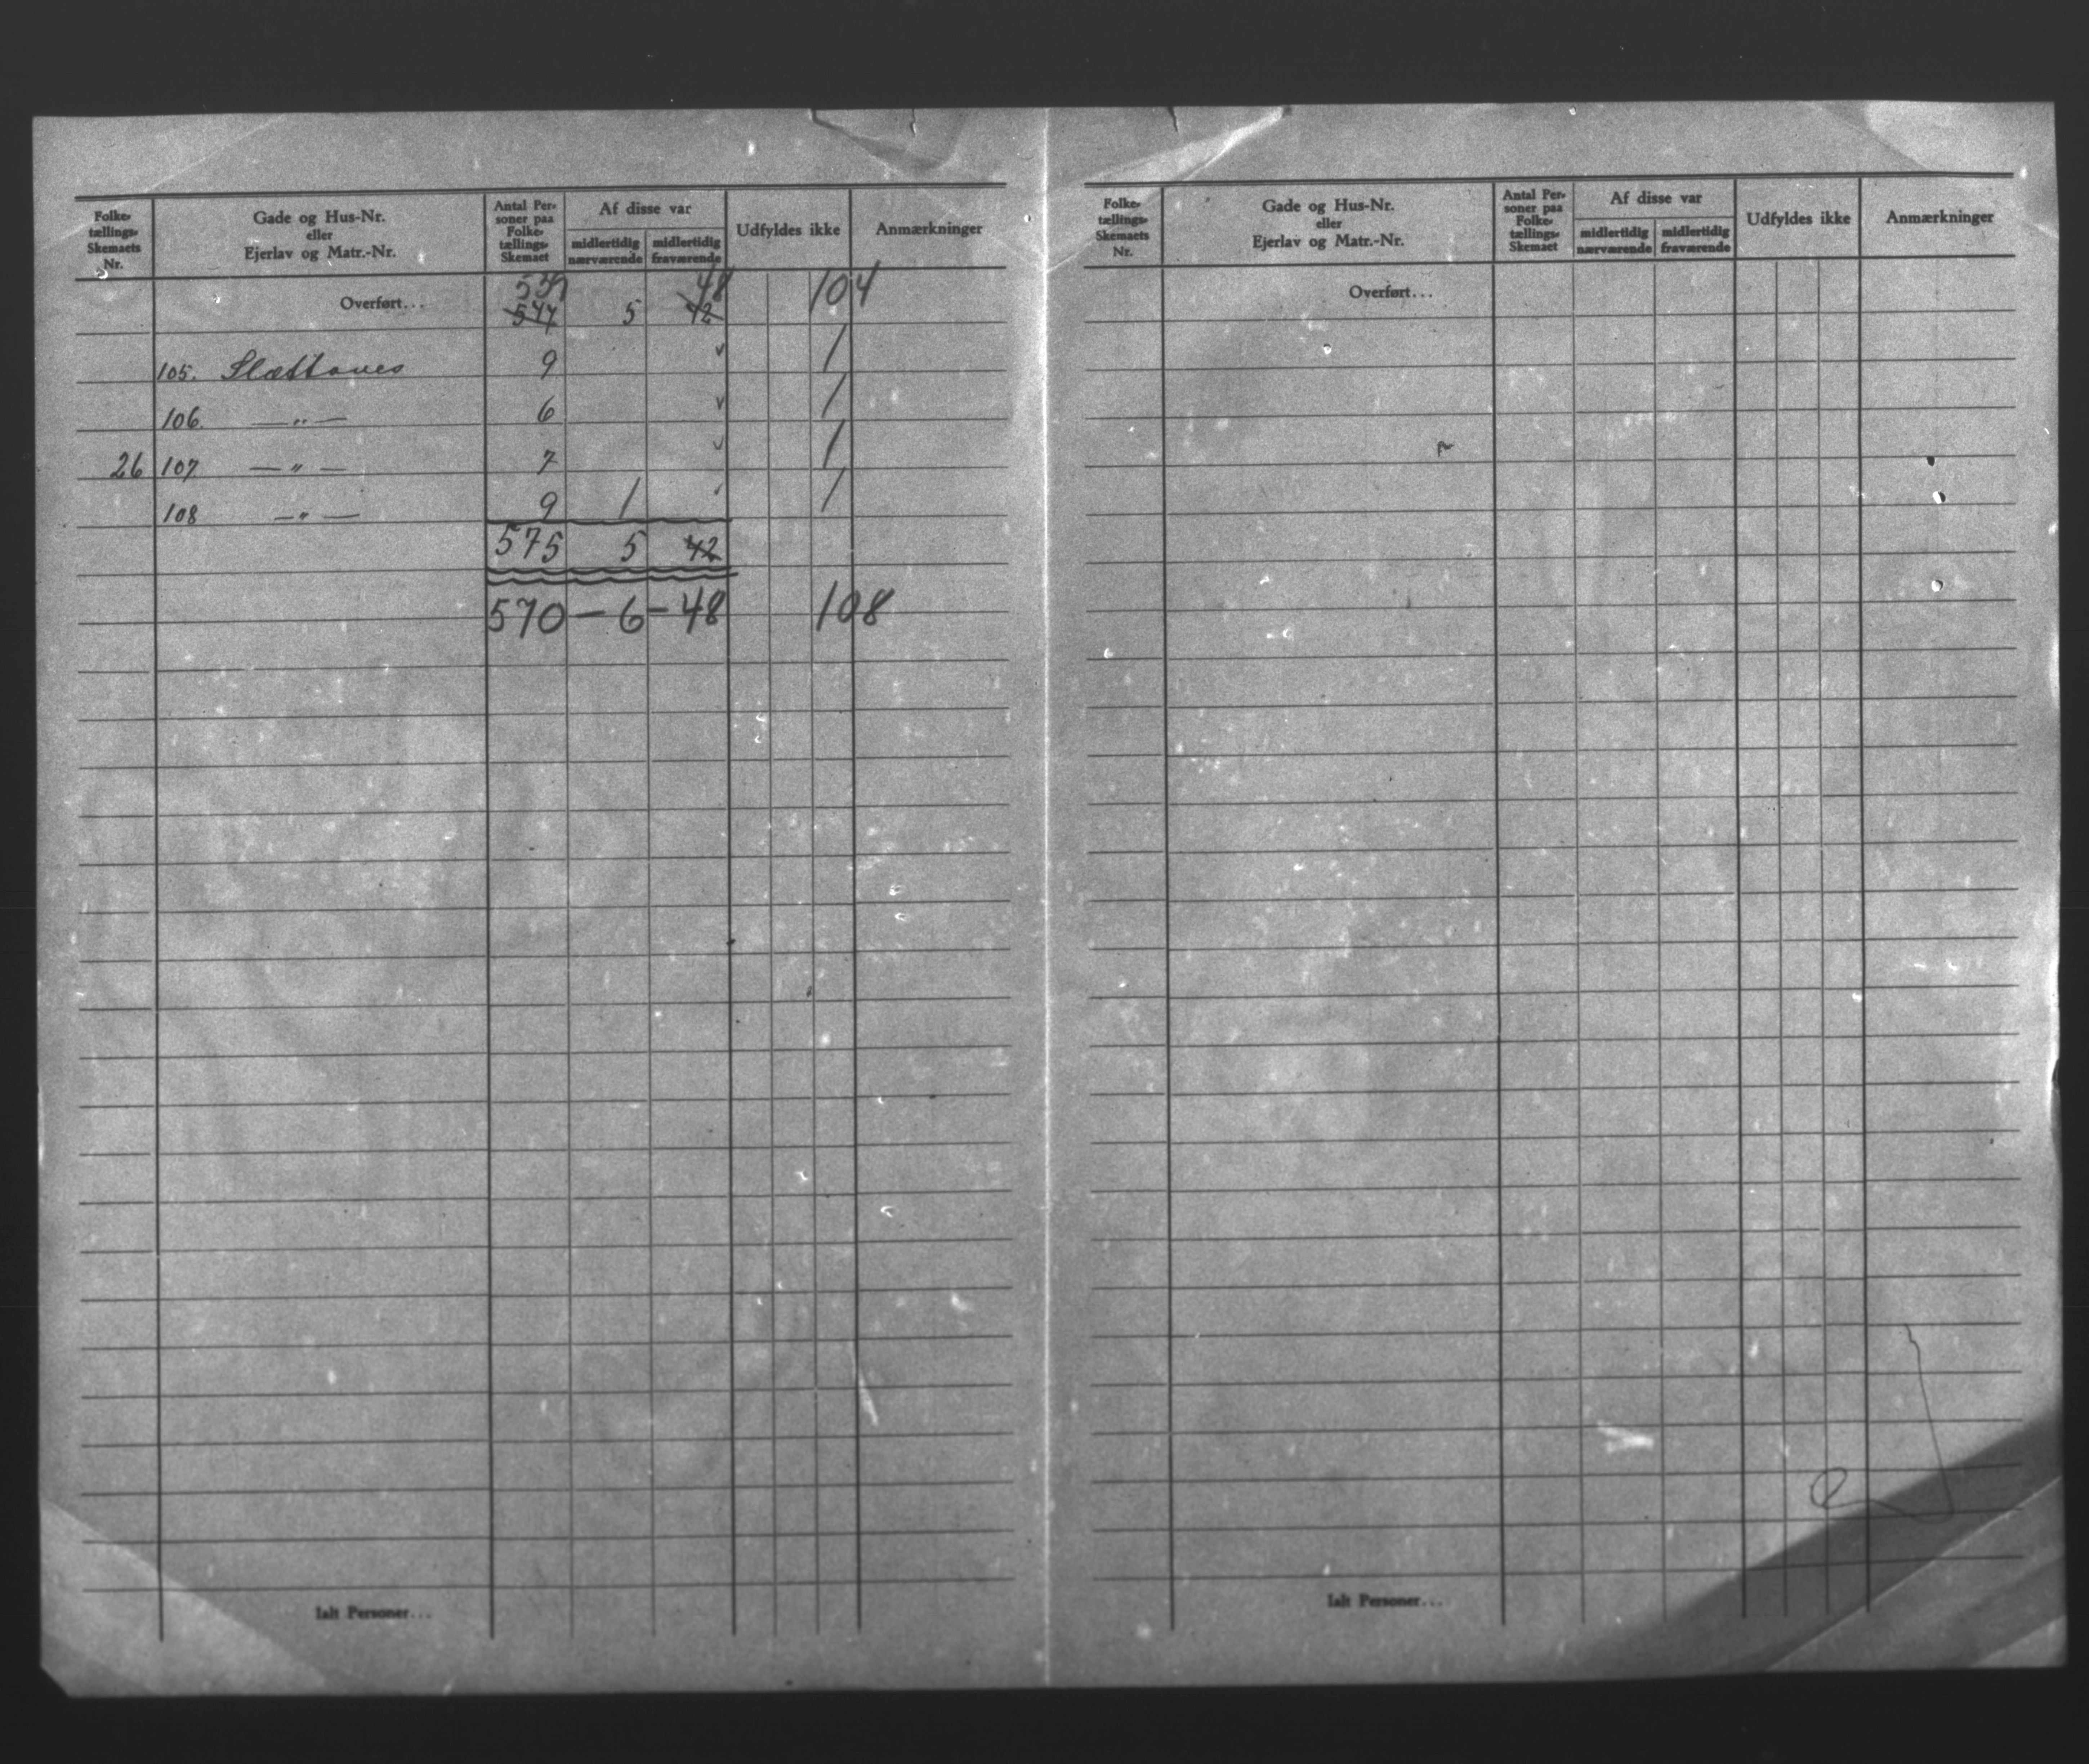 Folke-
tællings-
Skemaets
Nr.
Gade og Hus-Nr.
eller
Ejerlav og Matr.-Nr.
Antal Per-
soner paa
Folke-
tællings-
Skemaet
Af disse var
midlertidig
nærværende
midlertidig
fraværende
Udfyldes ikke
Anmærkninger
539 48
Overført... 544 5 42 104
105. Slættanes 9 v 1
106. —"— 6 v 1
26 107 —"— 7 v 1
108 —"— 9 1 1
575 5 42
570 — 6 — 48 108
Ialt Personer...
Folke-
tællings-
Skemaets
Nr.
Gade og Hus-Nr.
eller
Ejerlav og Matr.-Nr.
Antal Per-
soner paa
Folke-
tællings-
Skemaet
Af disse var
midlertidig
nærværende
midlertidig
fraværende
Udfyldes ikke
Anmærkninger
Overført...
Ialt Personer...